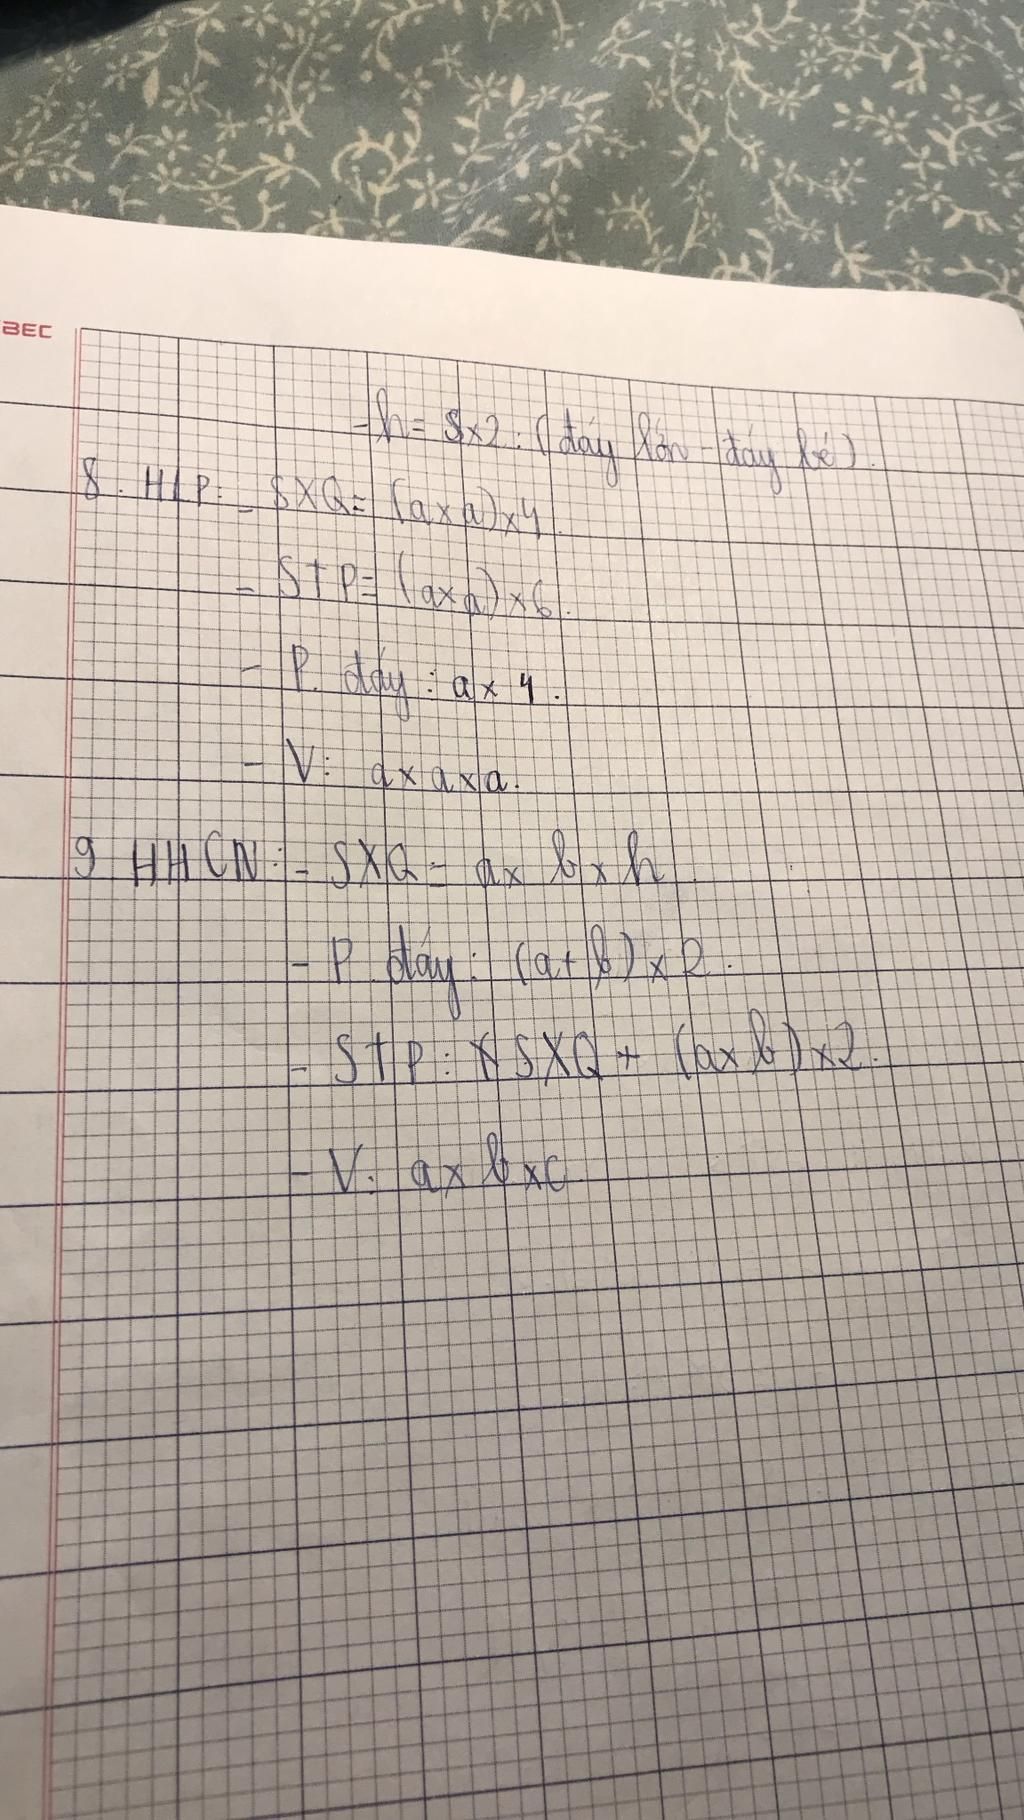 BEC
- h = S x 2 : (đáy lớn - đáy bé).
8. HLP: - SXQ = (a x a) x 4.
- STP = (a x a) x 6.
- P. đáy : a x 4.
- V: a x a x a.
9 HHCN: - SXQ = a x b x h
- P đáy: (a + b) x 2.
- STP: SXQ + (a x b) x 2.
- V: a x b x c